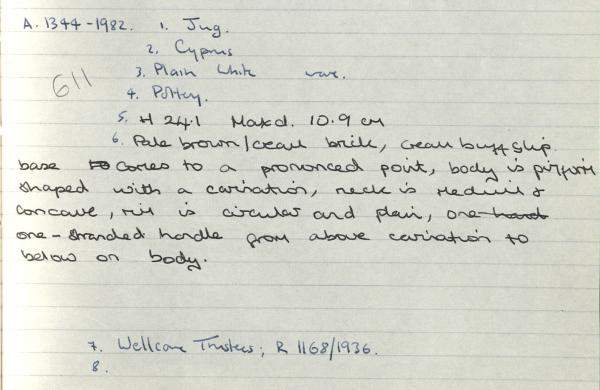 A. 1344-1982. 1. Jug.
2. Cyprus
3. Plain White ware.
611
4. Pottery.
5. H 24.1 Max d. 10.9 cm
6. Pale brown/cream brick, cream buff slip.
base comes to a pronounced point, body is piriform
shaped with a carination, neck is medium &
concave, rim is circular and plain, one-hand
one-stranded handle from above carination to
below on body.
7. Wellcome Trustees; R 1168/1936.
8.